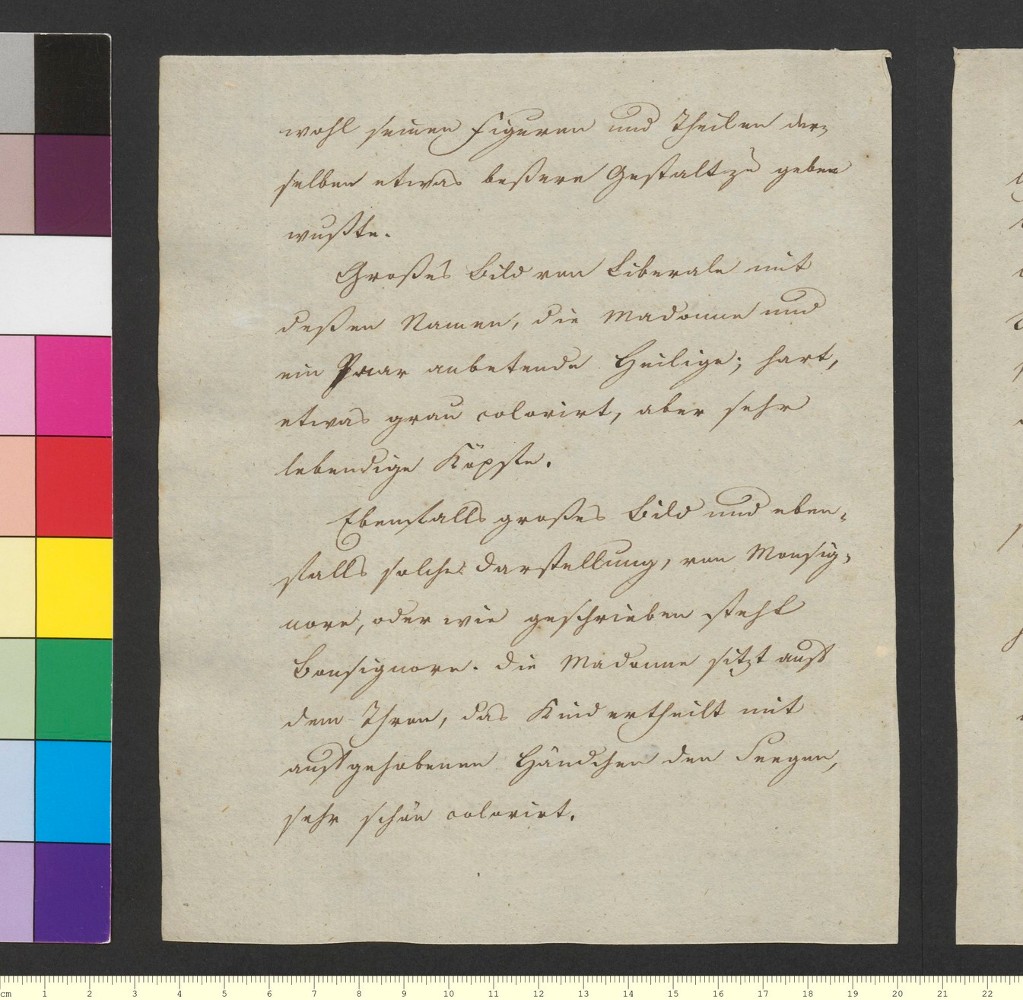 wohl seinen Figuren und Theilen der-
selben etwas beßere Gestalt zu geben
wußte.
Großes Bild von Liberale mit
deßen Namen, die Madonna und
ein Paar anbetende Heilige; hart,
etwas grau colorirt, aber sehr
lebendige Köpfe.
Ebenfalls großes Bild und eben-
falls solche Darstellung, von Monsig-
nore, oder wie geschrieben steht
Bonsignore. Die Madonna sitzt auf
dem Thron, das Kind ertheilt mit
aufgehobenen Händchen den Seegen,
sehr schön colorirt.
cm 1 2 3 4 5 6 7 8 9 10 11 12 13 14 15 16 17 18 19 20 21 22